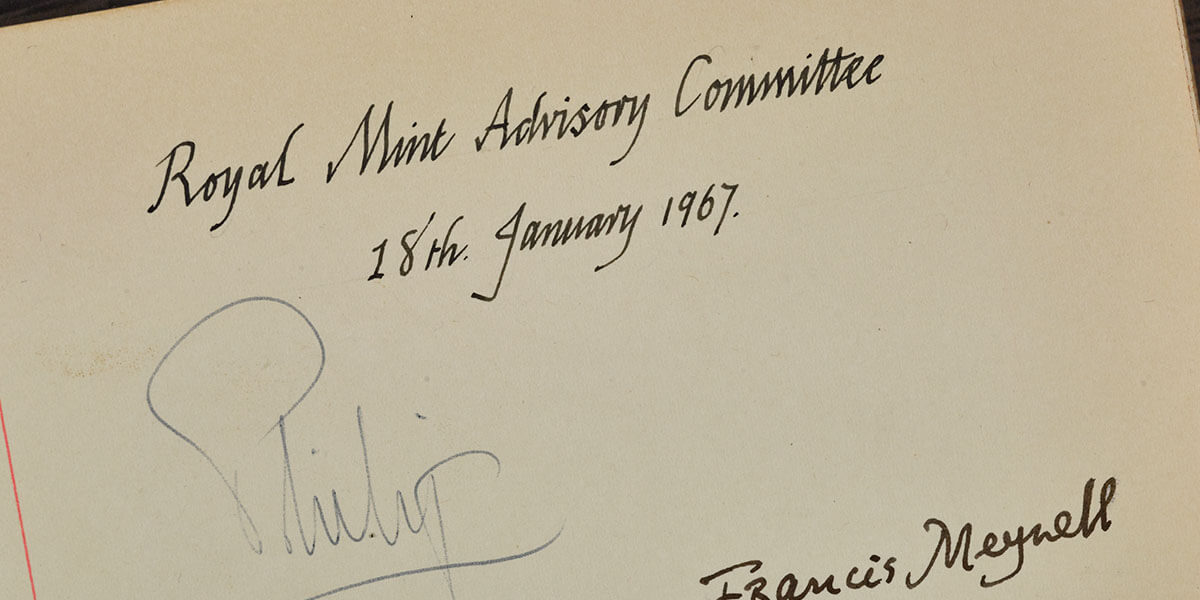 Royal Mint Advisory Committee
18th. January 1967.
Philip
Francis Meynell